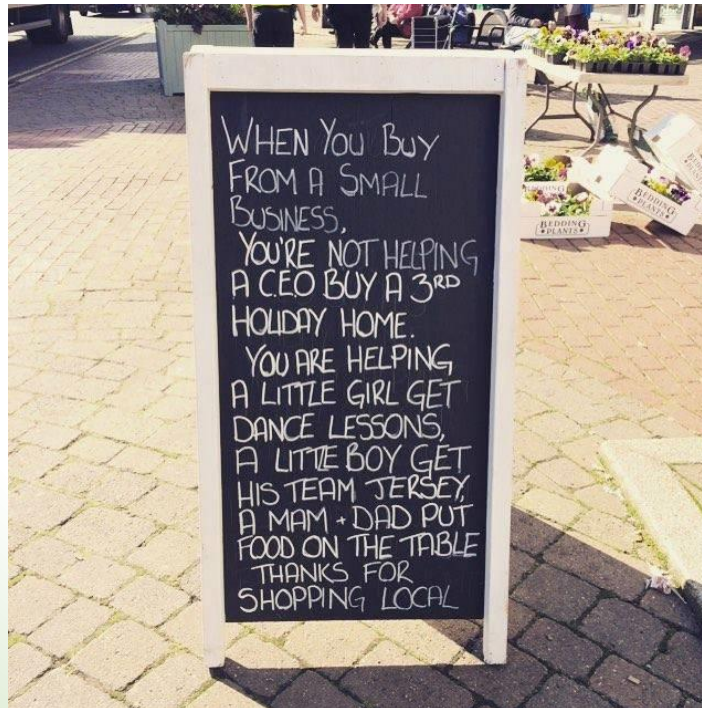 WHEN YOU BUY
FROM A SMALL
BUSINESS,
YOU'RE NOT HELPING
A C.E.O BUY A 3RD
HOLIDAY HOME.
YOU ARE HELPING
A LITTLE GIRL GET
DANCE LESSONS,
A LITTLE BOY GET
HIS TEAM JERSEY,
A MAM + DAD PUT
FOOD ON THE TABLE
THANKS FOR
SHOPPING LOCAL
BEDDING
BEDDING
PLANTS
BEDDING
PLANTS